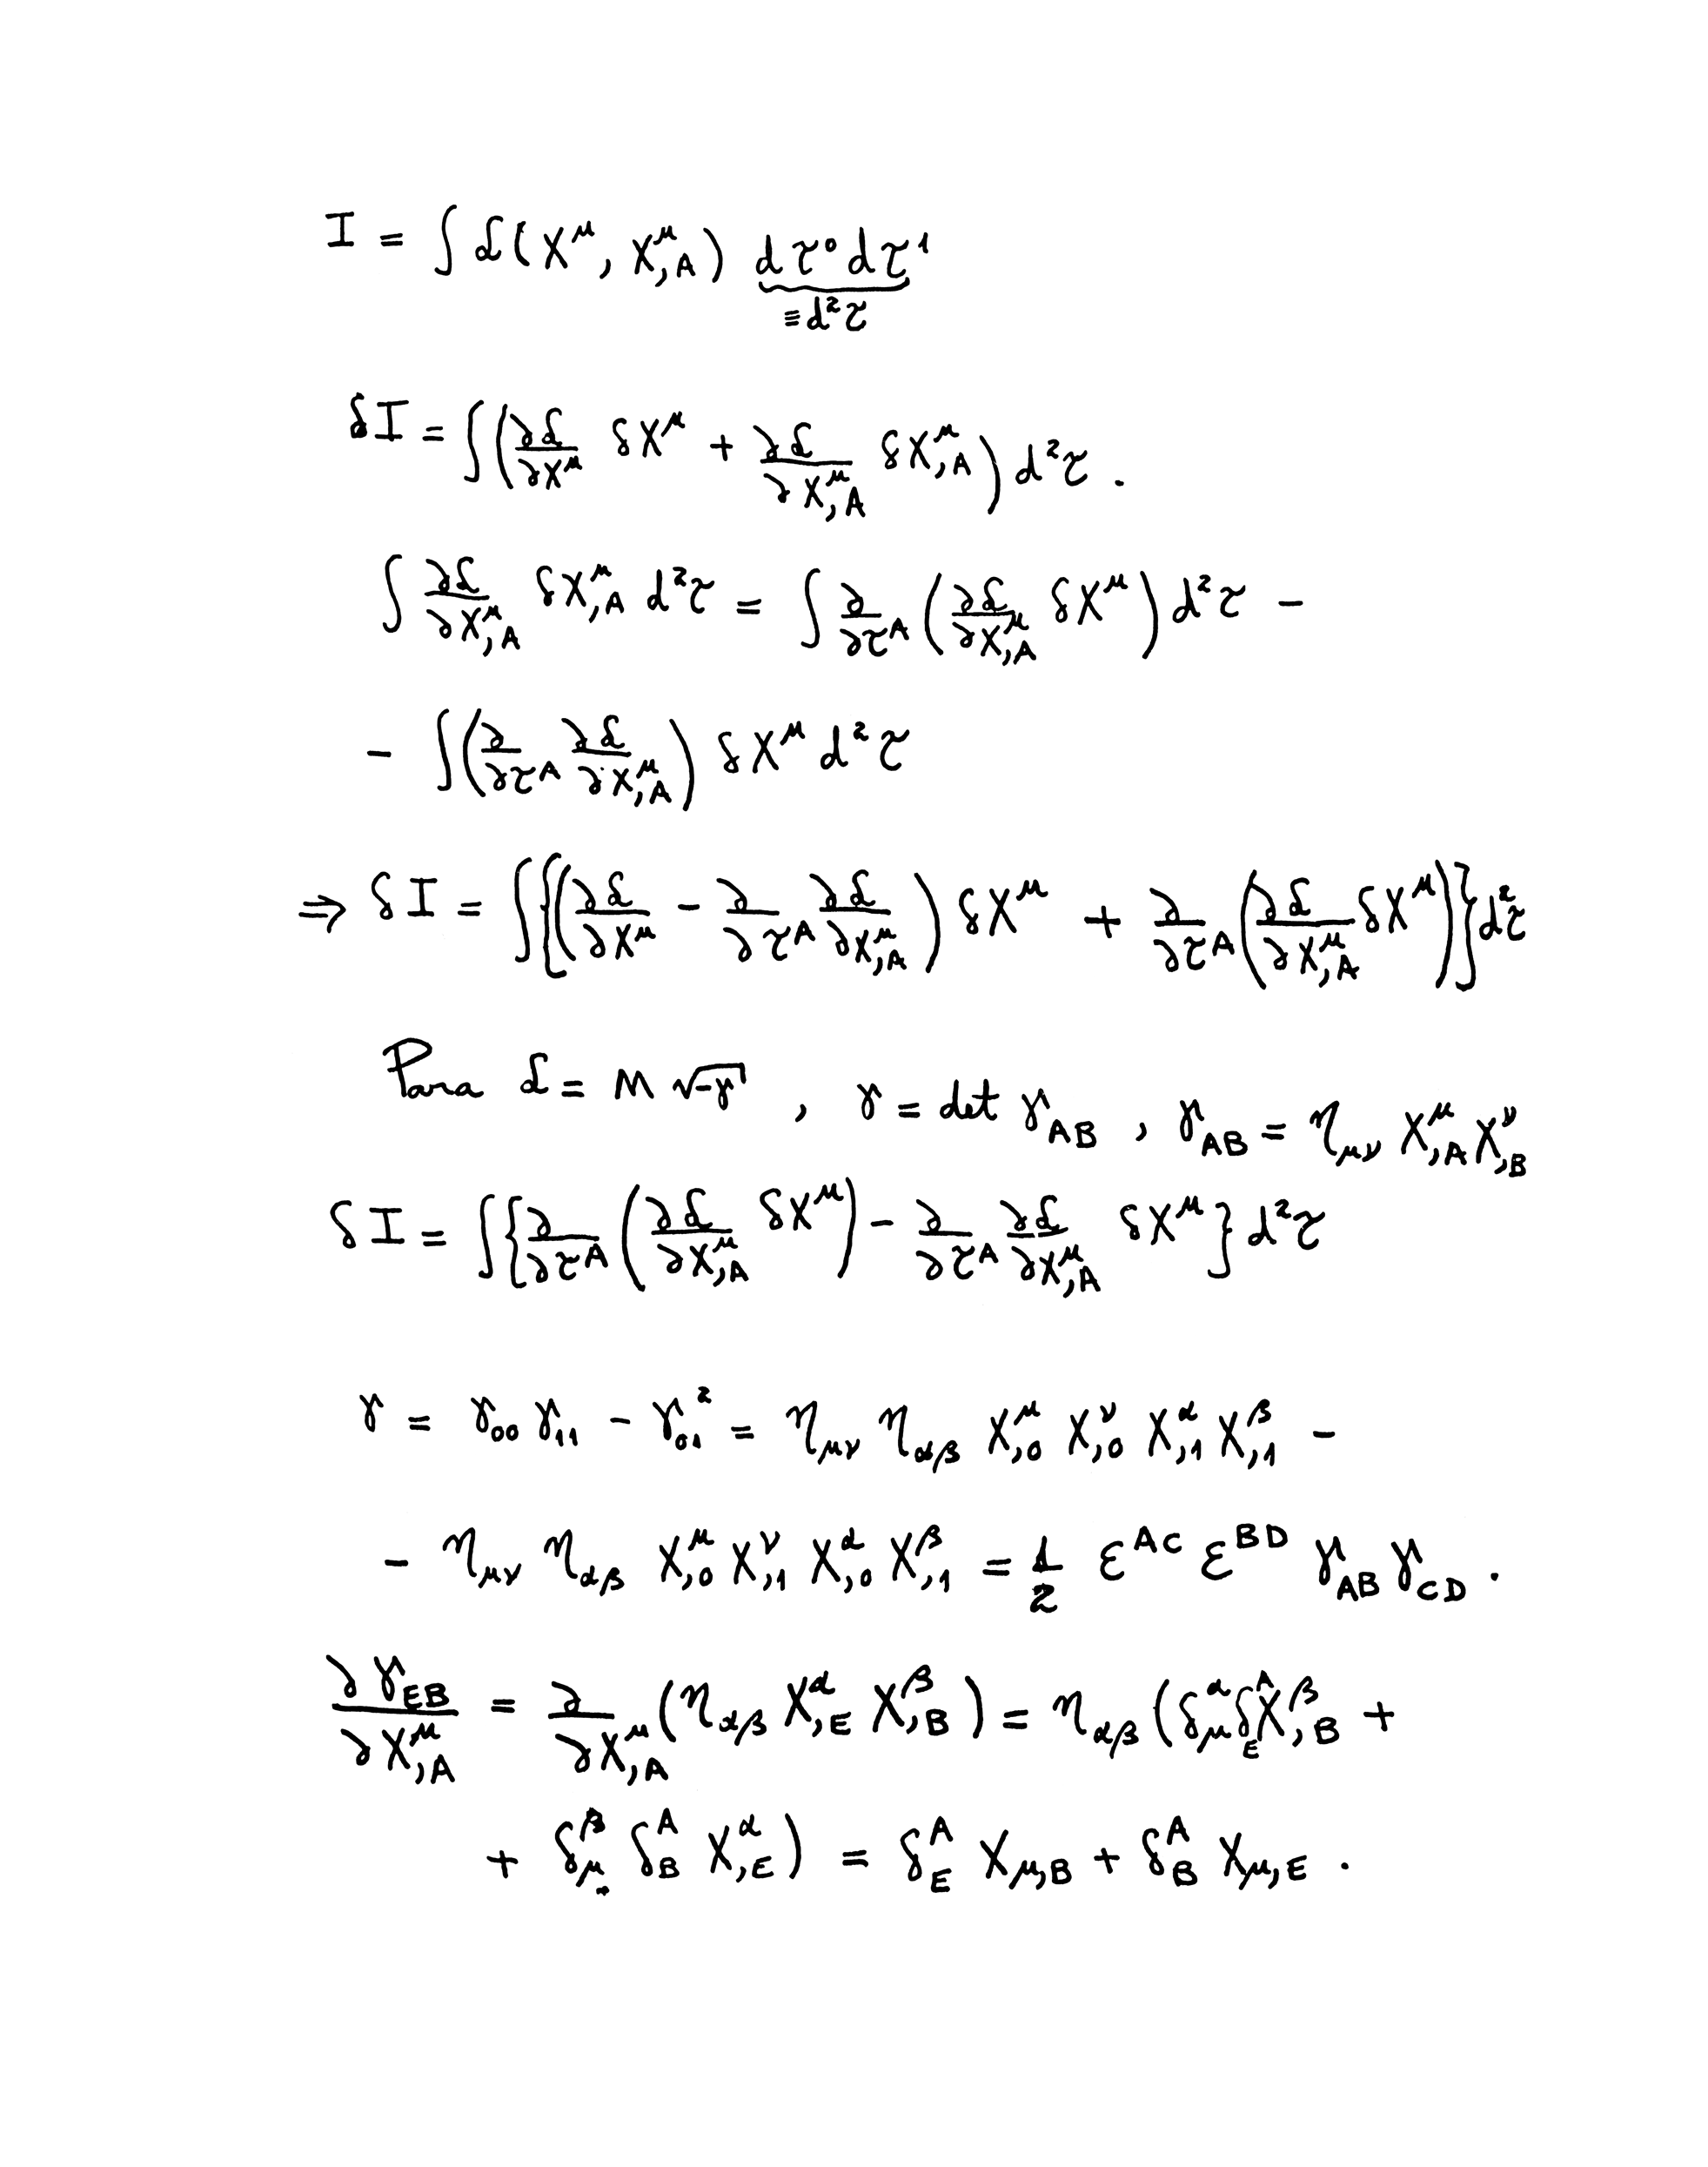 I = ∫ ℒ(X^μ, X^μ_{,A}) dτ⁰dτ¹
≡ d²τ
δI = ∫(∂ℒ/∂X^μ δX^μ + ∂ℒ/∂X^μ_{,A} δX^μ_{,A}) d²τ .
∫ ∂ℒ/∂X^μ_{,A} δX^μ_{,A} d²τ = ∫ ∂/∂τ^A (∂ℒ/∂X^μ_{,A} δX^μ) d²τ −
− ∫(∂/∂τ^A ∂ℒ/∂X^μ_{,A}) δX^μ d²τ
⇒ δI = ∫{(∂ℒ/∂X^μ − ∂/∂τ^A ∂ℒ/∂X^μ_{,A}) δX^μ + ∂/∂τ^A (∂ℒ/∂X^μ_{,A} δX^μ)} d²τ
Para ℒ = M √−γ , γ = det γ_{AB} , γ_{AB} = η_{μν} X^μ_{,A} X^ν_{,B}
δI = ∫{∂/∂τ^A (∂ℒ/∂X^μ_{,A} δX^μ) − ∂/∂τ^A ∂ℒ/∂X^μ_{,A} δX^μ} d²τ
γ = γ_{00} γ_{11} − γ_{01}² = η_{μν} η_{αβ} X^μ_{,0} X^ν_{,0} X^α_{,1} X^β_{,1} −
− η_{μν} η_{αβ} X^μ_{,0} X^ν_{,1} X^α_{,0} X^β_{,1} = 1/2 ε^{AC} ε^{BD} γ_{AB} γ_{CD} .
∂γ_{EB}/∂X^μ_{,A} = ∂/∂X^μ_{,A} (η_{αβ} X^α_{,E} X^β_{,B}) = η_{αβ} (δ^α_μ δ^A_E X^β_{,B} +
+ δ^β_μ δ^A_B X^α_{,E}) = δ^A_E X_{μ,B} + δ^A_B X_{μ,E} .